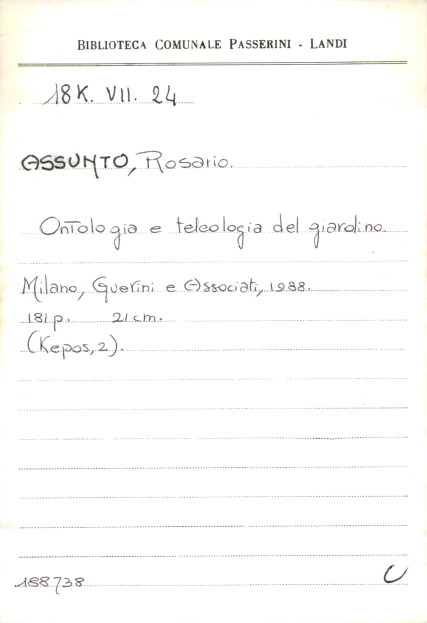 BIBLIOTECA COMUNALE PASSERINI - LANDI
18K. VII. 24
ASSUNTO, Rosario.
Ontologia e teleologia del giardino.
Milano, Guerini e Associati, 1988.
181 p. 21 cm.
(Kepos, 2).
188738 C